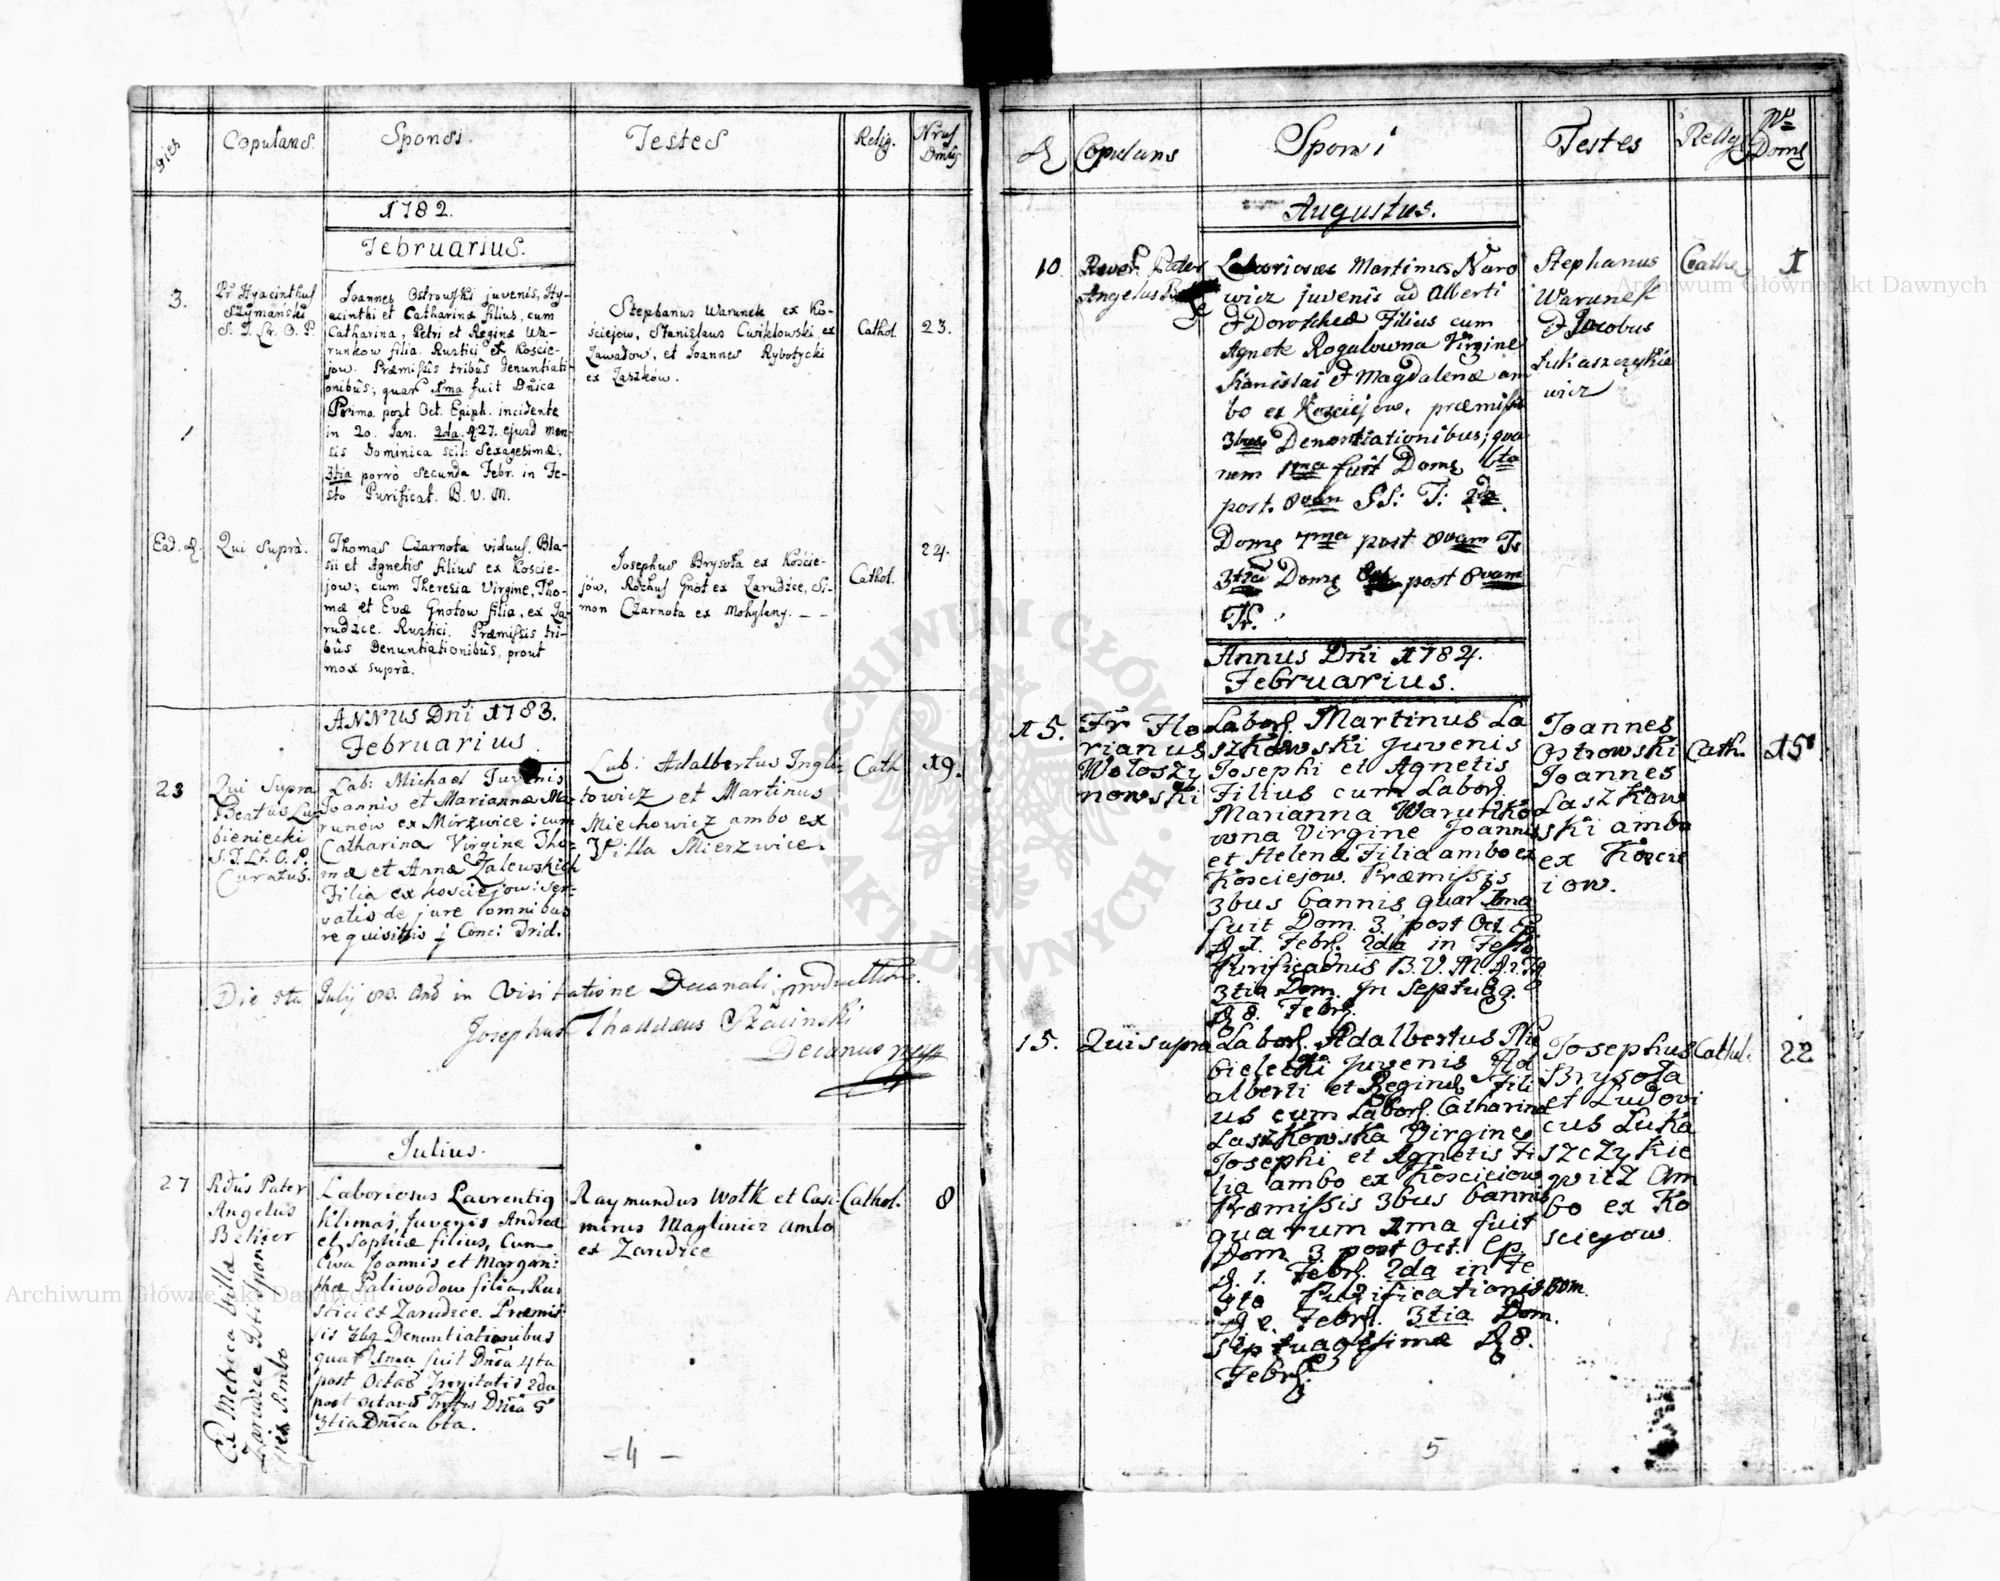 Dies
Copulans
Sponsi.
Testes
Relig.
Nrus
Domûs
1782.
Februarius.
3.
Pr Hyacinthus
Szymański
S. T. Lr. O. P.
Joannes Ostrowski juvenis, Hy-
acinthi et Catharinæ filius, cum
Catharina, Petri et Reginæ Wa-
runkow filia. Rustici ex Koscie-
jow. Præmissis tribûs denuntiati-
onibûs; quar 1ma fuit Dnica
Prima post Oct. Epiph. incidente
in 20. Jan. 2da. 27. ejusd men-
sis Dominica scil: Sexagesimæ;
3tia porrò secunda Febr. in Fe-
sto Purificat. B. V. M.
Stephanus Warunek ex Ko-
ściejow, Stanislaus Cwiklowski ex
Zawadow, et Joannes Rybotycki
ex Zaszków.
Cathol.
23.
Ead. d.
Qui suprà.
Thomas Czarnota viduus, Bla-
sii et Agnetis filius ex Koscie-
jow; cum Theresia Virgine, Tho-
mæ et Evæ Gnotow filia, ex Za-
rudzce. Rustici. Præmissis tri-
bûs Denuntiationibûs, prout
mox suprà.
Josephus Brysoła ex Koście-
jów, Rochus Gnot ex Zarudzce, Si-
mon Czarnota ex Mohylany. — —
Cathol.
24.
ANNUS Dni 1783.
Februarius
23
Qui Supra
Beatus Lu
bieniecki
S. T. Lr. O. P.
Curatus.
Lab: Michael Juvenis
Joannis et Mariannæ Ma-
runów ex Mirzwice: cum
Catharina Virgine Tho-
mæ et Annæ Zalewskich
Filia ex Kosciejow: ser-
vatis de jure omnibus
requisitis Conc: Trid.
Lab: Adalbertus Ingle-
towicz et Martinus
Miechowicz ambo ex
Villa Mierzwice.
Cath
19.
Die 8ta Julij 1783. Anô in Visitatione Decanali productum.
Josephus Thaddæus
Decanus mpp
Julius.
27
Rdus Pater
Angelus
Ex Metrica bulla
Zarudzce
Ambo
Laboriosus Laurentius
Klimas, Juvenis Andreæ
et Sophiæ filius, Cum
Eva Joannis et Marga-
Paliwodow filia, Rus-
tici ex Zarudzce. Præmis
sis 3bq Denuntiationibus
quar 1ma fuit Dnica 4ta
post Octav Trinitatis 2da
post octavâ Dnica 5
3tia Dnica 6ta.
Raymundus Wolk et Casi-
mirus Maglinicz ambo
ex Zarudzce
Cathol.
8
- 4 -
D
Copulans
Sponsi
Testes
Relig
No
Domq
Augustus.
10
Rever. Pater
Angelus
Laboriosus Martinus Naro
wicz juvenis ad Alberti
& Dorotheæ Filius cum
Agnete Rogalowna Virgine
Stanislai & Magdalenæ am
bo ex Kosciejow, præmissis
3bus Denontiationibus; qua
rum 1ma fuit Domq 6ta
post. 8vam SS: T: 2da
Domq 7ma post 8vam Tr
3tia Domq post 8vam
Tr.
Stephanus
Warunek
& Jacobus
Łukaszczykie
wicz
Catho
1
Annus Dni 1784.
Februarius.
15.
Fr Flo
rianus
Wołoszy
nowski
Labors. Martinus La
szkowski juvenis
Josephi et Agnetis
Filius cum Labors.
Marianna Warunko
wna Virgine Joannis
et Helenæ Filia ambo ex
Kosciejow. Præmissis
3bus bannis quar 1ma
fuit Dom. 3. post Oct. Ep
D 1. Febrs. 2da in Festo
Purificatnis B. V. M. D. 2.
3tia Dom. in Septuag.
D 8. Febrs.
Joannes
Ostrowski
Joannes
Laszkow
ski ambo
ex Koscie
iow.
Cath.
15
15.
Qui supra
Labors. Adalbertus Nie
bielecki Juvenis Ad
alberti et Reginæ Fili
us cum Labors. Catharina
Laszkowska Virgine
Josephi et Agnetis Fi
lia ambo ex Kosciejow
Præmissis 3bus bannis
quarum 1ma fuit
Dom 3. post Oct. Ep.
D. 1. Febrs. 2da in Fe
sto Purificationis
D 2. Febrs. 3tia Dom.
Septuagesimæ D 8.
Febrs.
Josephus
Brysoła
et Ludovi
cus Luka
szczykie
witz Am
bo ex Ko
sciejow.
Cathol.
22
5
Archiwum Główne Akt Dawnych
Archiwum Główne Akt Dawnych
ARCHIWUM GŁÓWNE AKT DAWNYCH